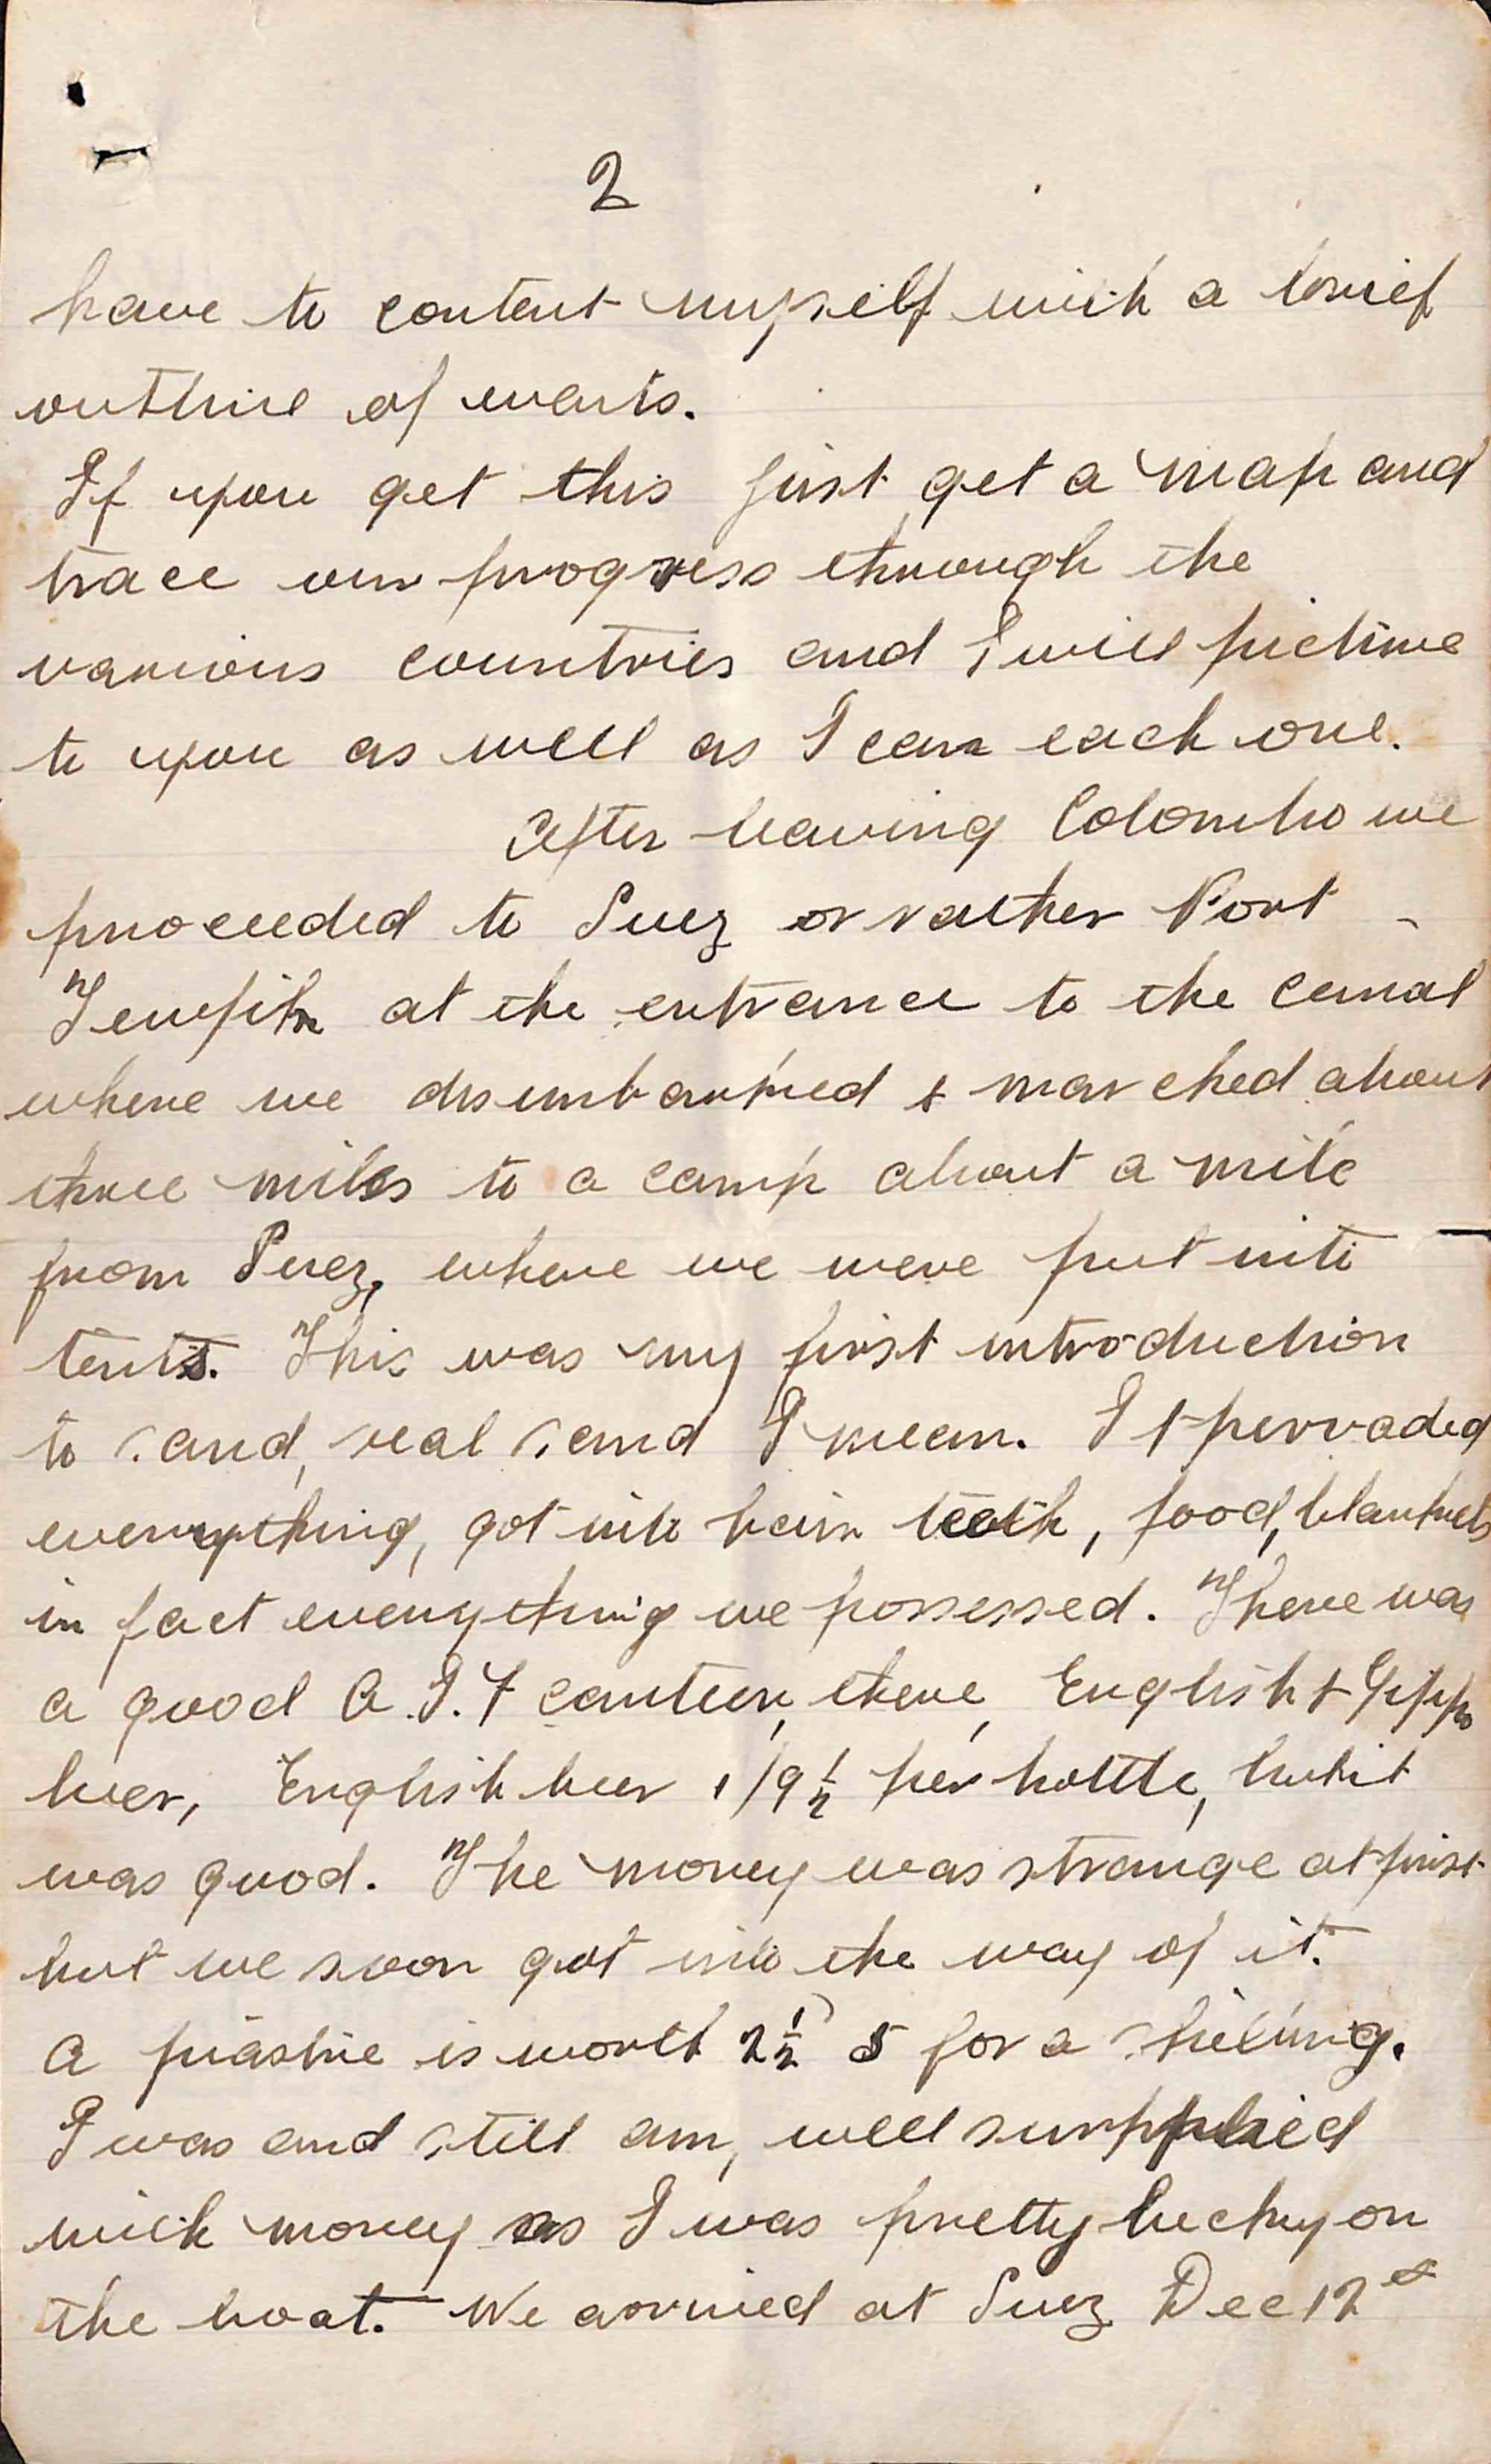 2
have to content myself with a brief
outline of events.
If you get this first get a map and
trace our progress through the
various countries and I will picture
to you as well as I can each one.
After leaving Colombo we
proceeded to Suez or rather Port
Tewfik at the entrance to the canal
where we disembarked & marched about
three miles to a camp about a mile
from Suez, where we were put into
tents. This was my first introduction
to sand, real sand I mean. It pervaded
everything, got into hair teeth, food, blankets
in fact everything we possessed. There was
a good A.I.F canteen, there, English & Gyppo
beer, English beer 1/9½ per bottle, but it
was good. The money was strange at first
but we soon got into the way of it.
A piastre is worth 2½ 5 for a shilling.
I was and still am, well supplied
with money as I was pretty lucky on
the boat. We arrived at Suez Dec 12th